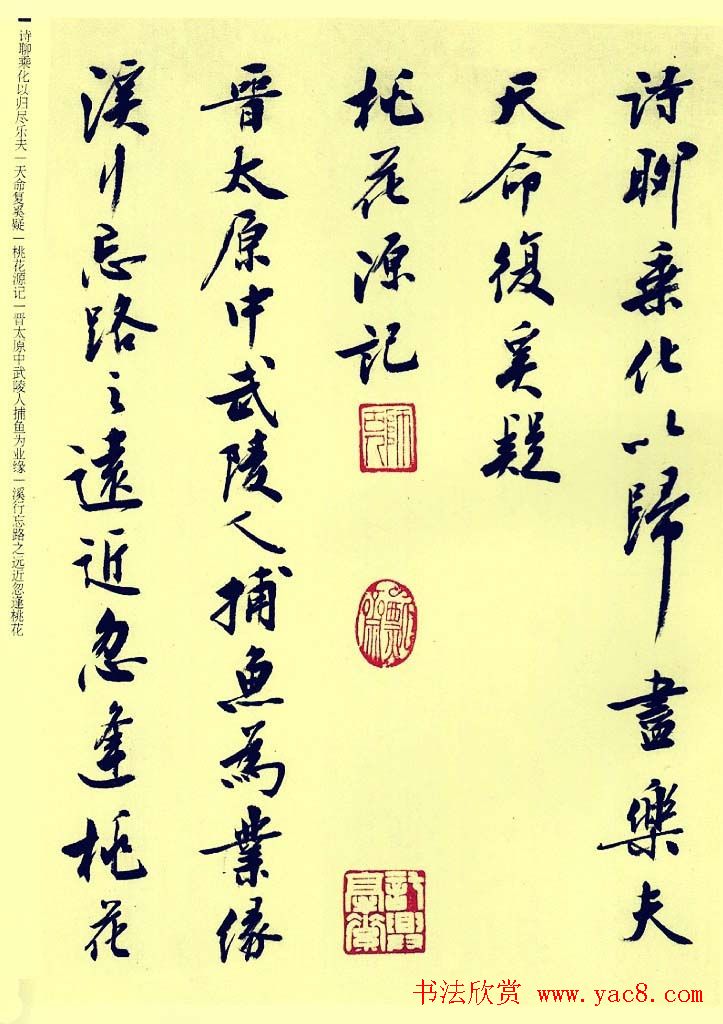 诗聊乘化以歸盡樂夫
天命復奚疑
桃花源記
晋太原中武陵人捕魚為業缘
溪行忘路之遠近忽逢桃花
诗聊乘化以归尽乐夫|天命复奚疑|桃花源记|晋太原中武陵人捕鱼为业缘|溪行忘路之远近忽逢桃花
书法欣赏 www.yac8.com